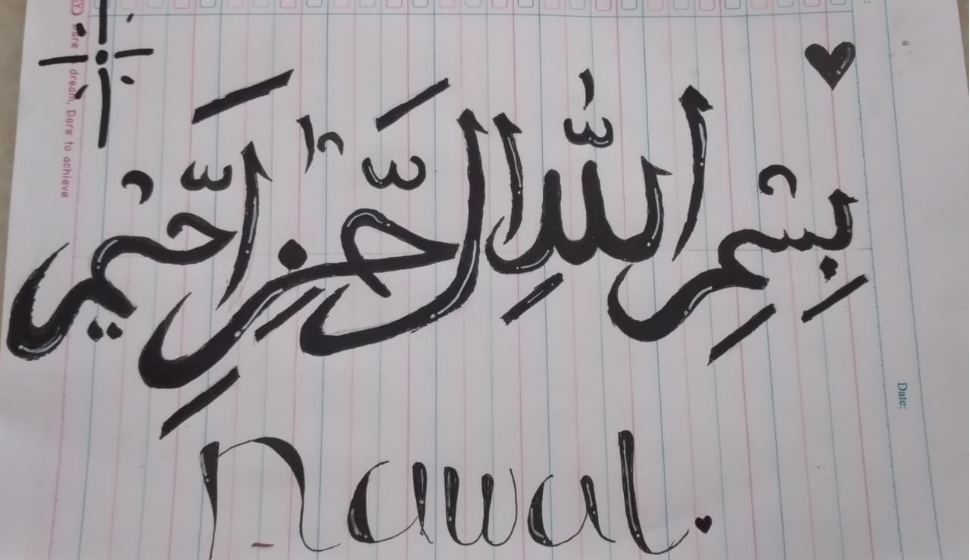 بِسْمِ اللّٰهِ الرَّحْمٰنِ الرَّحِيمِ
nawal.
Dare to dream, Dare to achieve
Date: